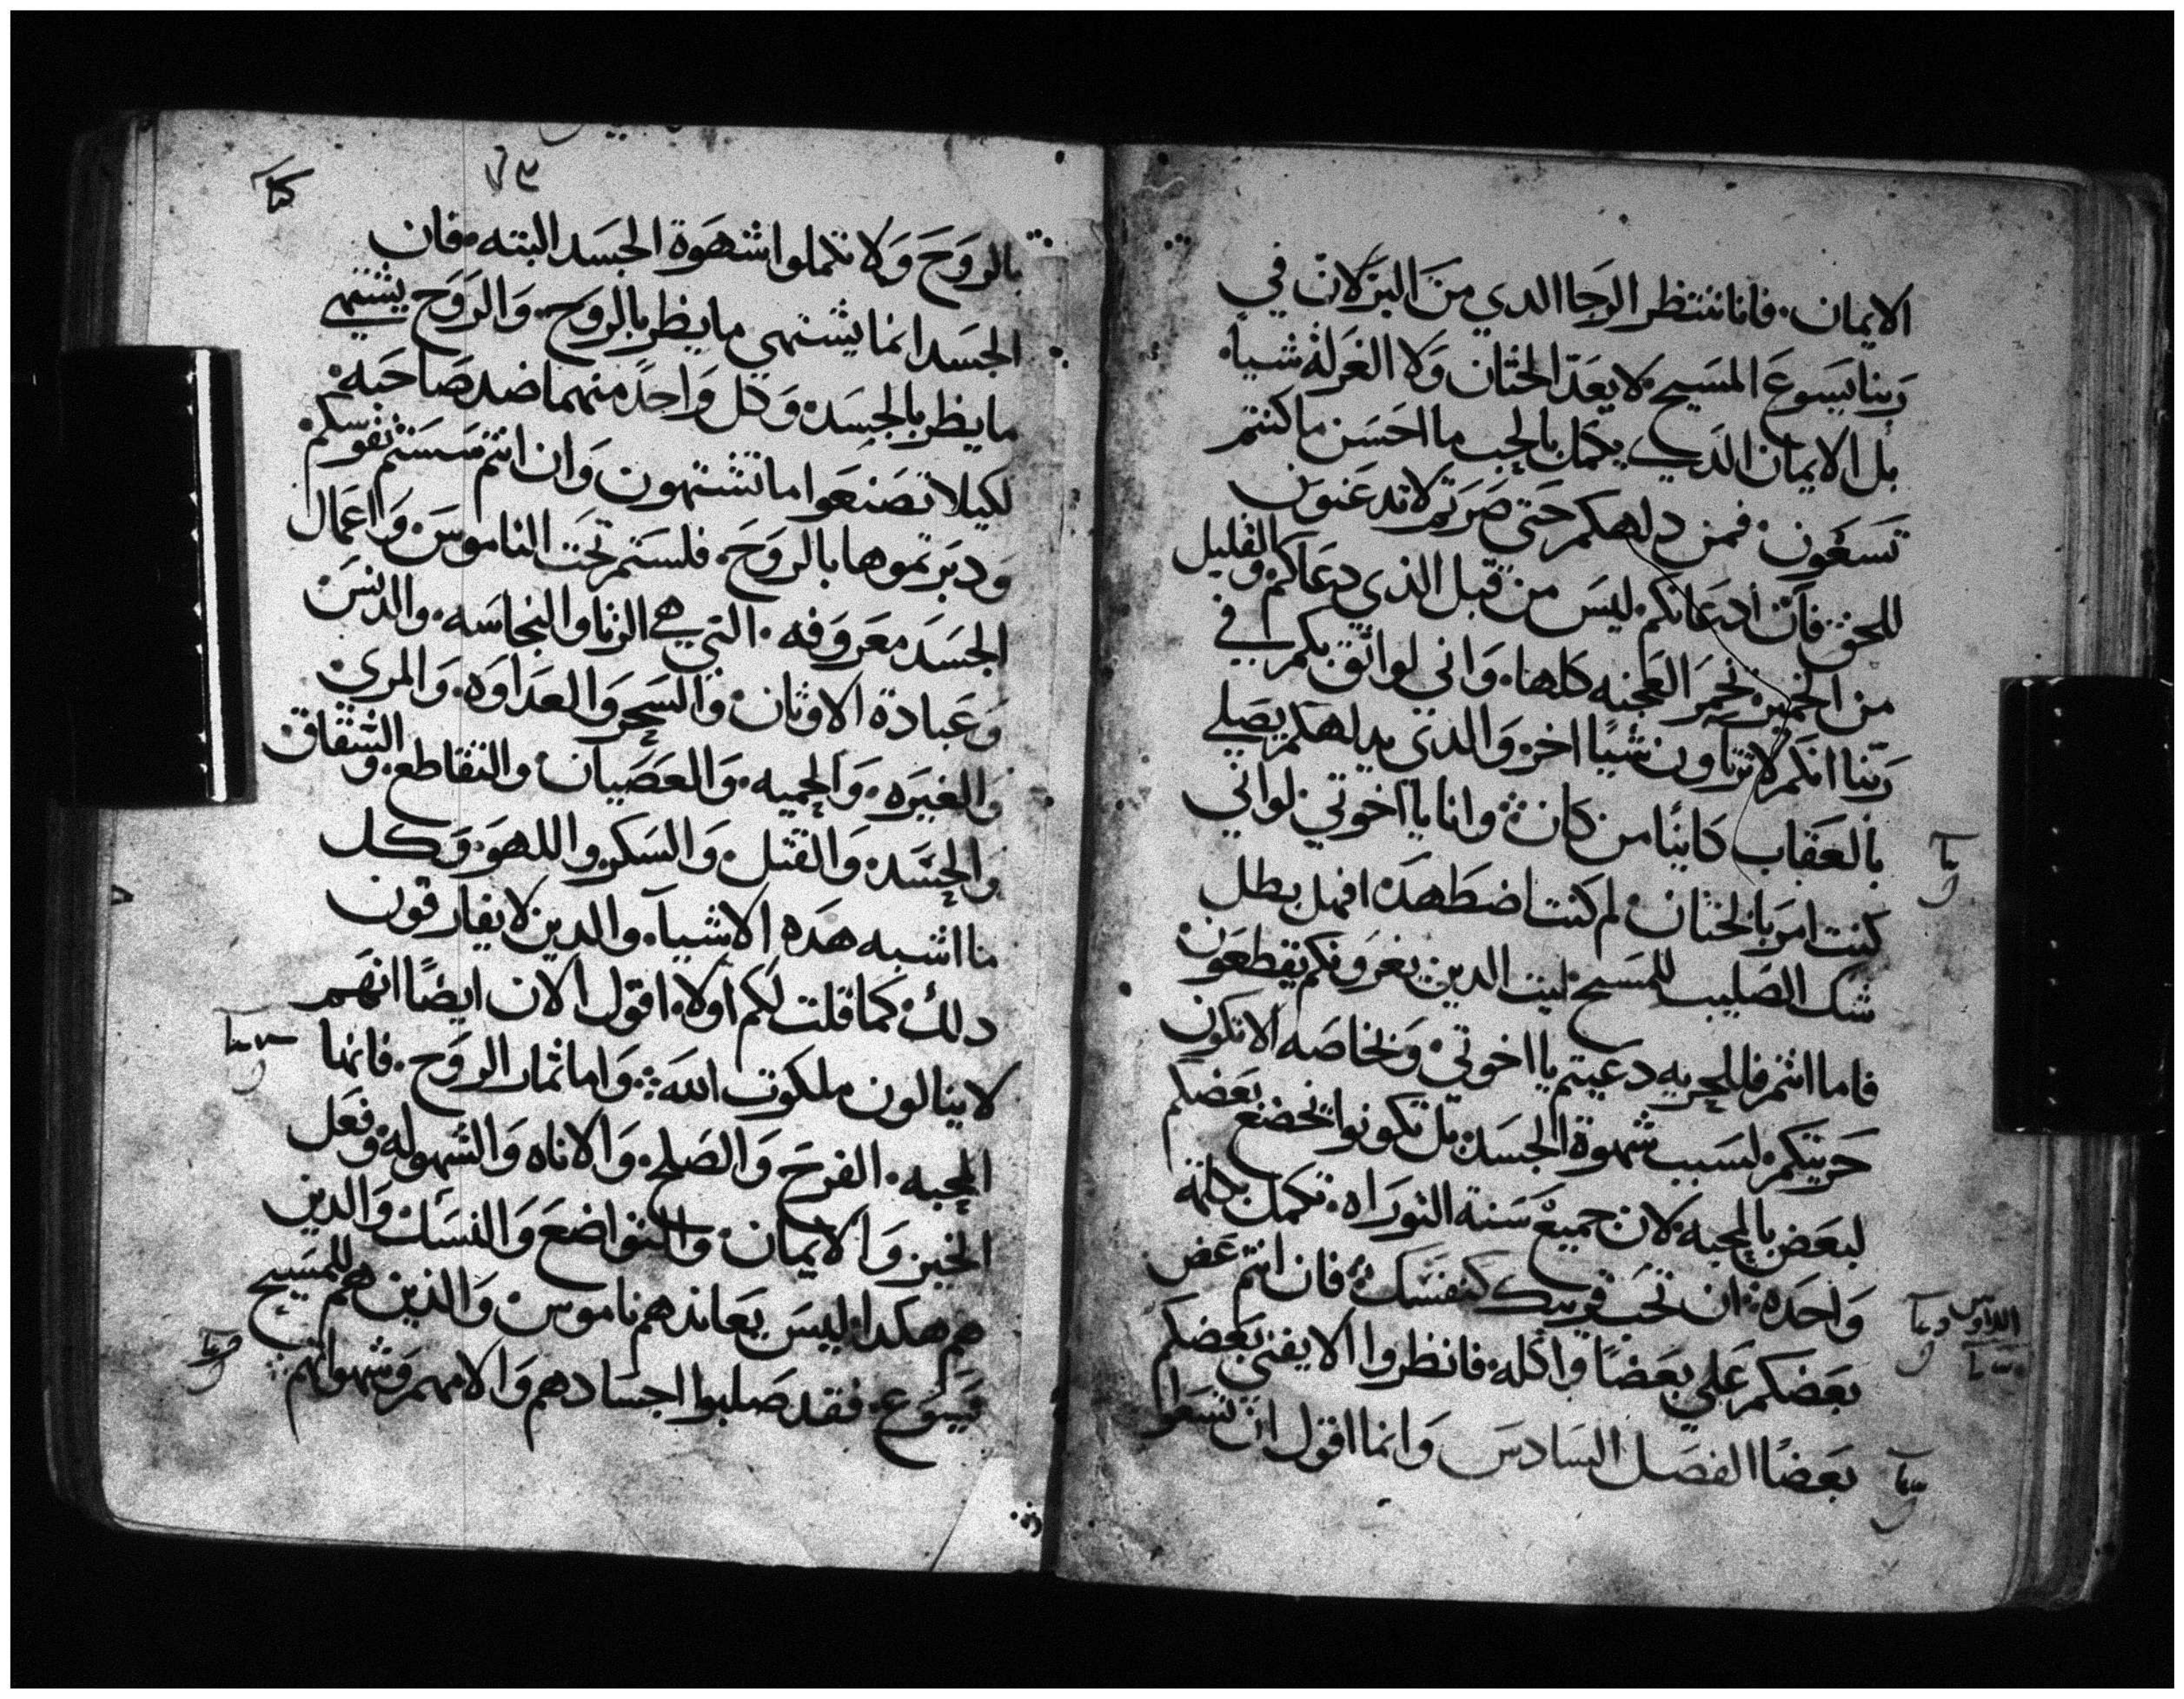 الايمان. فاناننتظر الرجا الدي من البر لان في
ربنا يسوع المسيح لا يعد الختان ولا الغرله شيا
بل الايمان الدي يكمل بالحب ما احسن ما كنتم
تسعون فمن دلهكم حتى صرتم لا تدعنون
للحق فان ادعانكم ليس من قبل الذي دعاكم والقليل
من الخمير يخمر العجنه كلها. واني لواثق بكم في
ربنا انكم لا ترتاون شيًا اخر والدي يدلهكم يصلي
بالعقاب كاينًا من كان وانا يا اخوتي لو اني
كنت امر بالختان لم كنت اضطهد افهل بطل
شك الصليب للمسيح ليت الدين يغرونكم يقطعون
فاما انتم فللحريه دعيتم يا اخوتي وبخاصه الا تكون
حريتكم لسبب شهوة الجسد بل تكونوا يخضع بعضكم
لبعض بالمحبه لان جميع سنة التوراه تكمل بكلمة
واحده ان تحب قريبك كنفسك فان انتم عض
بعضكم على بعضًا واكله فانظروا الا يفني بعضكم
بعضًا الفصل السادس وانما اقول ان تسعوا
بالروح ولا تكملوا شهوة الجسد البته. فان
الجسد انما يشتهي ما يظر بالروح. والروح يشتهي
ما يظر بالجسد وكل واحدً منهما ضد صاحبه
لكيلا تصنعوا ما تشتهون وان انتم سستم نفوسكم
ودبرتموها بالروح. فلستم تحت الناموس واعمال
الجسد معروفه. التي هي الزنا والنجاسه. والدنس
وعبادة الاوثان والسحر والعداوه. والمري
والغيره. والحميه. والعصيان والتقاطع. والشقاق
والحسد والقتل والسكر واللهو وكل
ما اشبه هده الاشيا. والدين لا يفارقون
دلك كما قلت لكم اولا. اقول الان ايضًا انهم
لا ينالون ملكوت الله واما ثمار الروح. فانها
المحبه. الفرح والصلح. والاناه والسهوله وفعل
الخير والايمان والتواضع والنسك والدين
هم هكدا ليس يعاندهم ناموس والذين هم للمسيح
يسوع. فقد صلبوا اجسادهم والامهم وشهواتهم